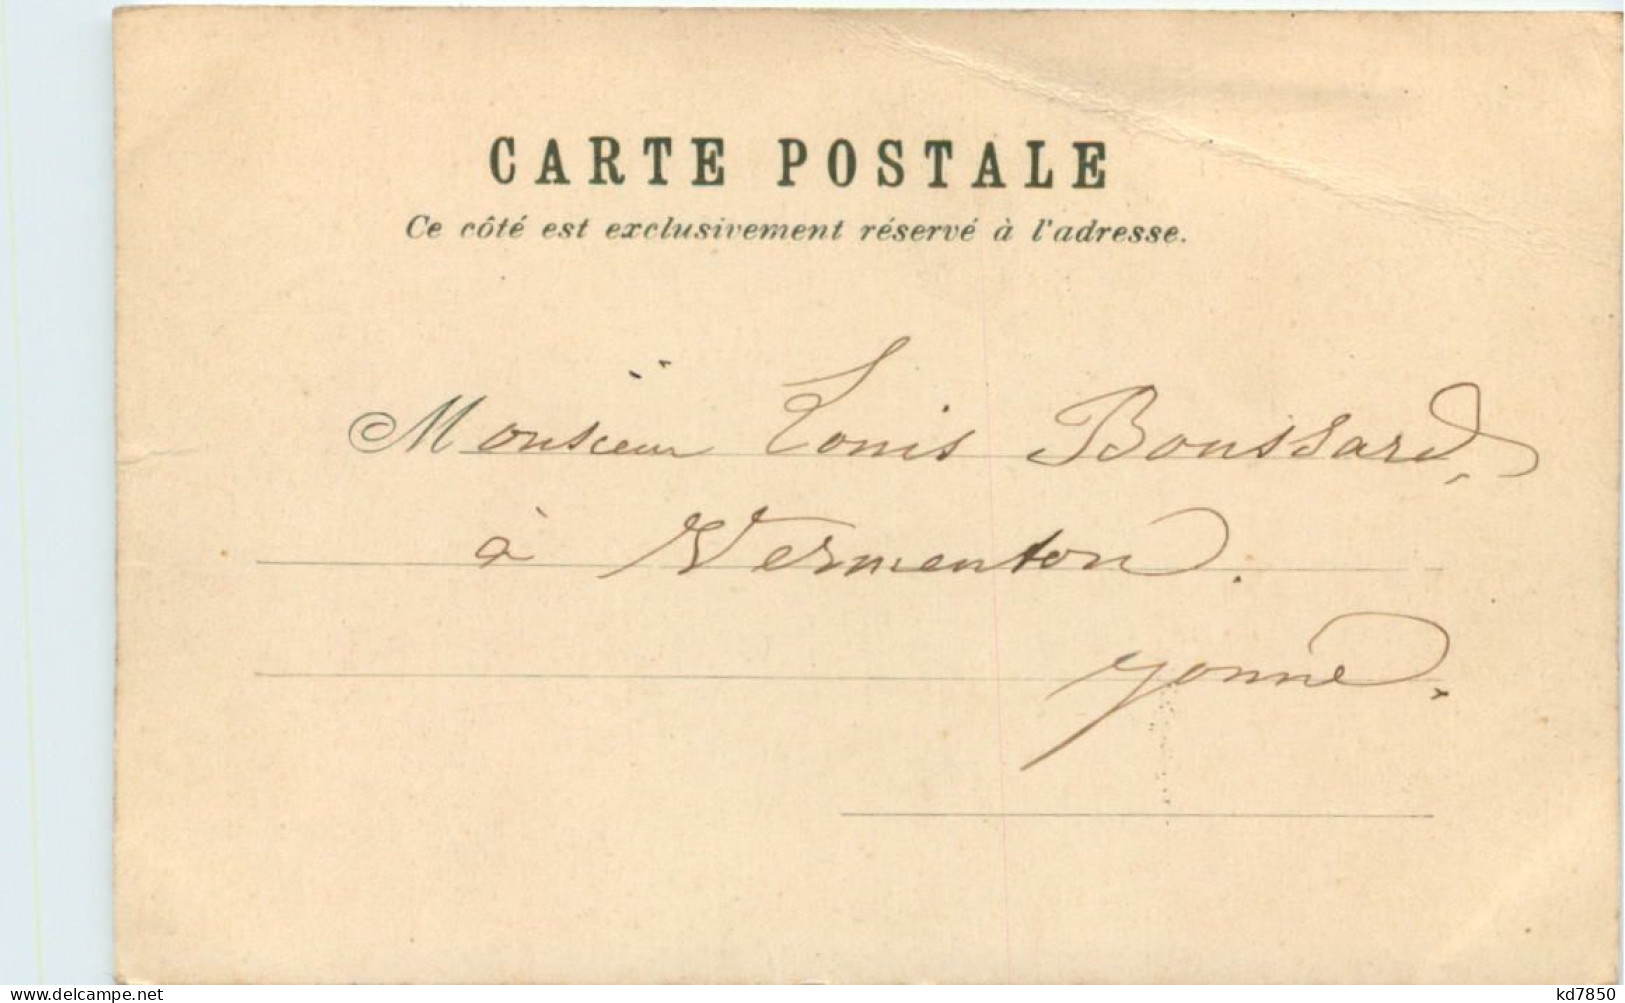 CARTE POSTALE
Ce côté est exclusivement réservé à l'adresse.
Monsieur Louis Boussard,
à Vermenton.
Yonne.
www.delcampe.net
kd7850